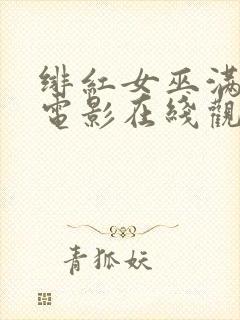 绯紅女巫滿
電影在綫觀
青狐妖